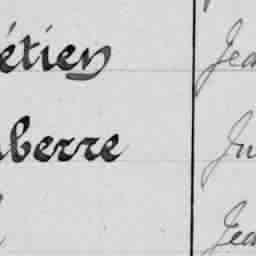 étien Jea
berre Ju
Jea